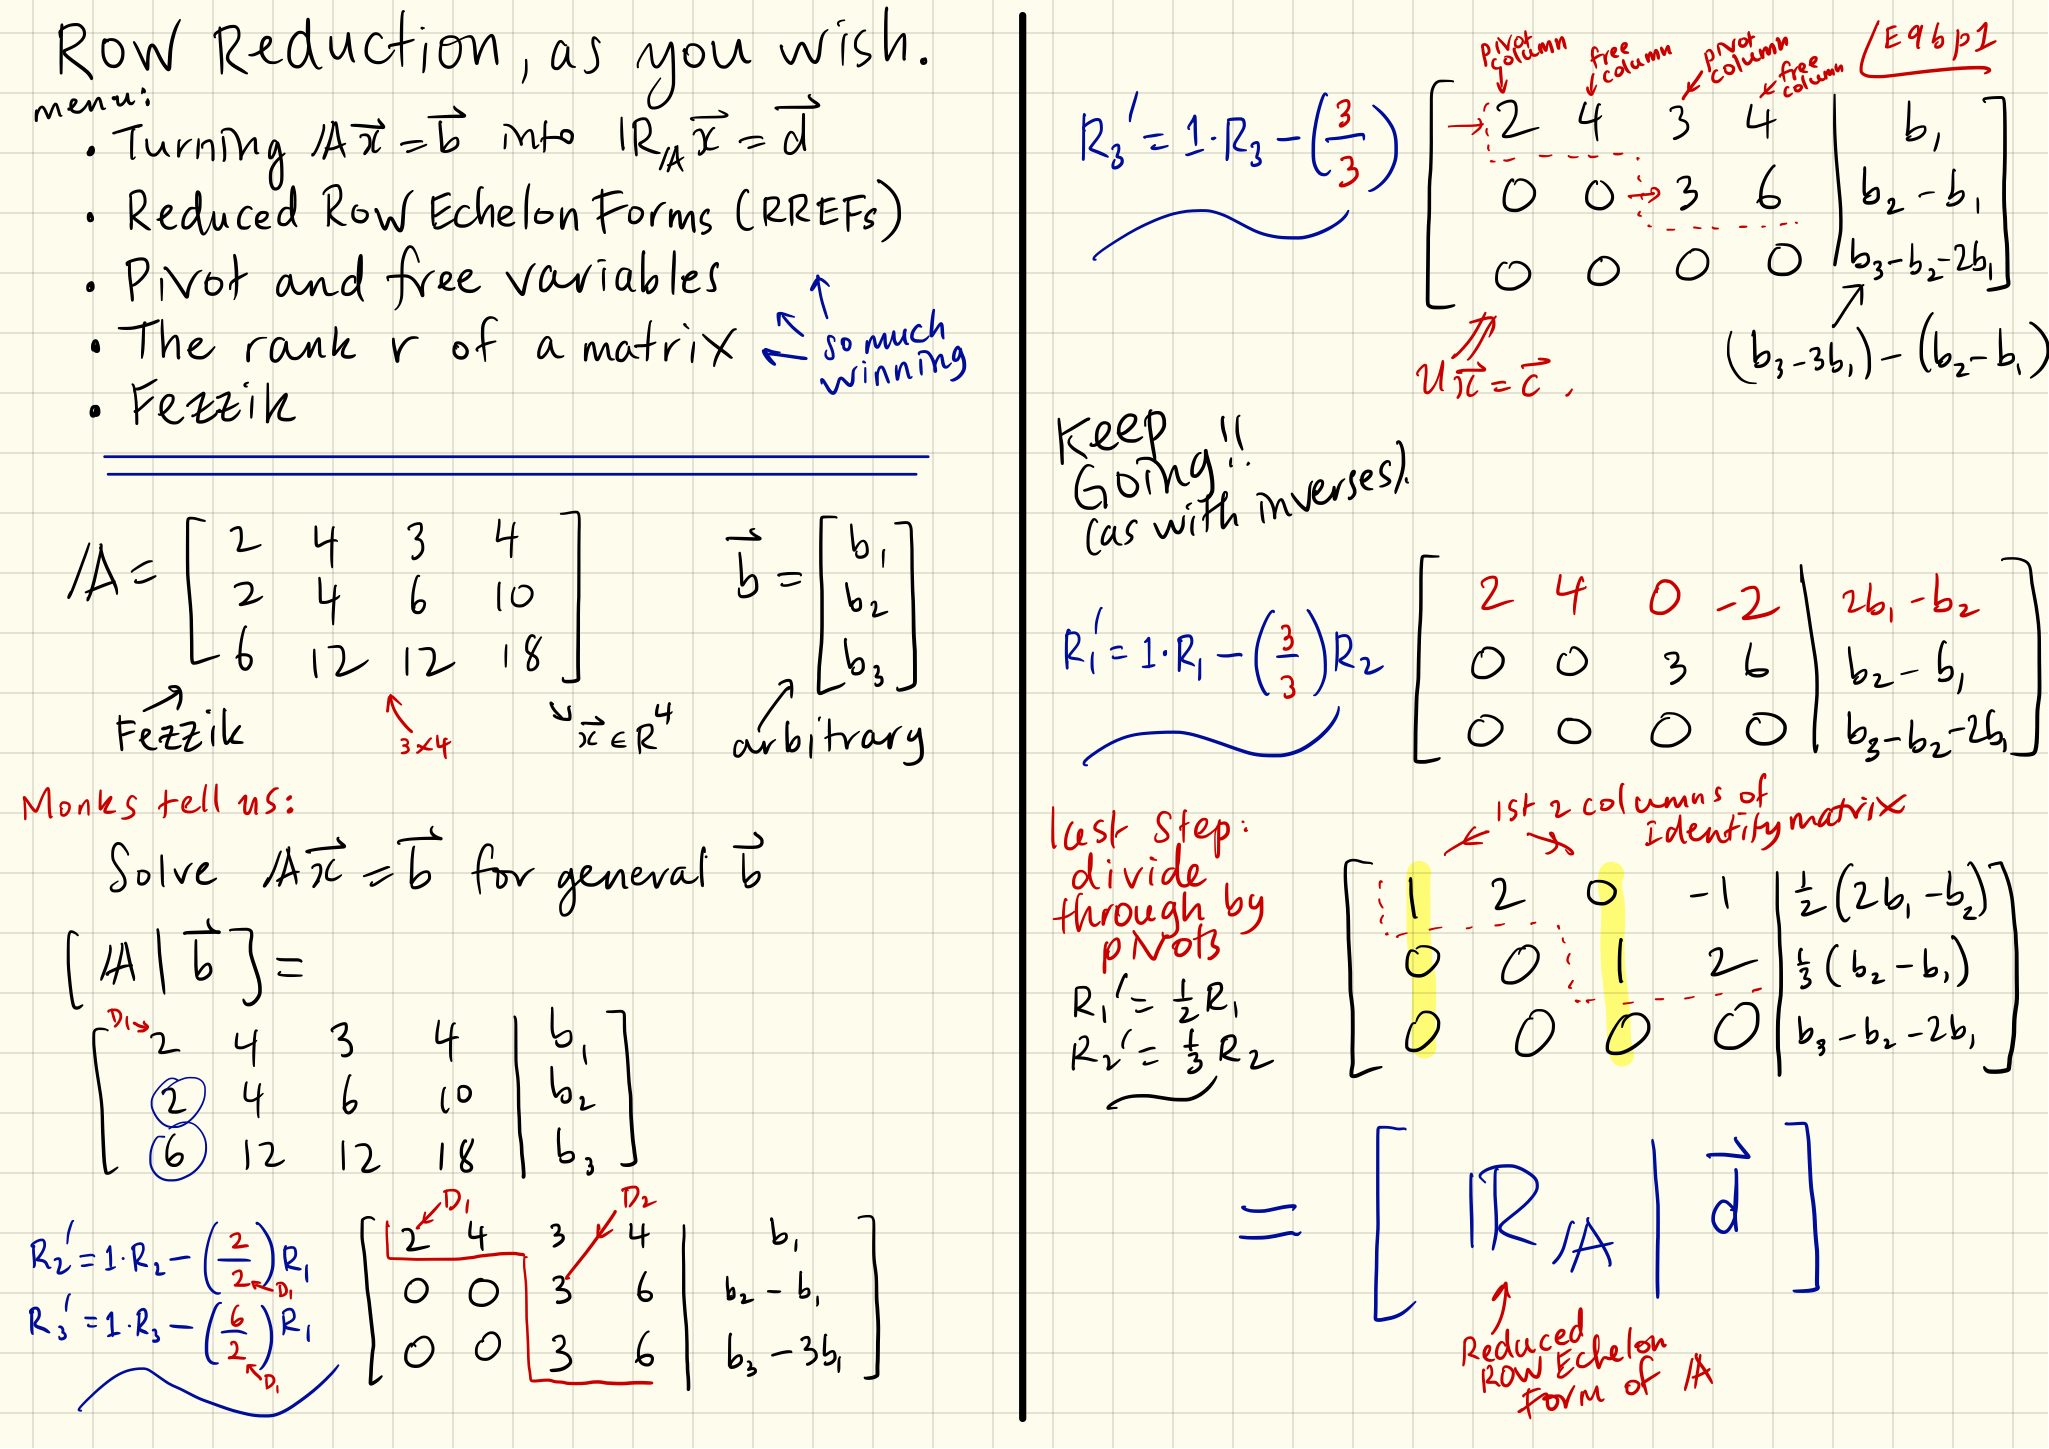 Row Reduction, as you wish.
menu:
• Turning 𝔸x⃗ = b⃗ into ℝ_𝔸 x⃗ = d⃗
• Reduced Row Echelon Forms (RREFs)
• Pivot and free variables
• The rank r of a matrix
so much
winning
• Fezzik
𝔸 = [ 2 4 3 4
2 4 6 10
6 12 12 18 ]
b⃗ = [ b₁
b₂
b₃ ]
Fezzik
3×4
x⃗ ∈ R⁴
arbitrary
Monks tell us:
Solve 𝔸x⃗ = b⃗ for general b⃗
[ 𝔸 | b⃗ ] =
D₁→
[ 2 4 3 4 | b₁
2 4 6 10 | b₂
6 12 12 18 | b₃ ]
R₂' = 1·R₂ − (2/2) R₁
D₁
R₃' = 1·R₃ − (6/2) R₁
D₁
D₁
D₂
[ 2 4 3 4 | b₁
0 0 3 6 | b₂ − b₁
0 0 3 6 | b₃ − 3b₁ ]
E9bp1
pivot column
free column
pivot column
free column
R₃' = 1·R₃ − (3/3)
[ 2 4 3 4 | b₁
0 0 3 6 | b₂ − b₁
0 0 0 0 | b₃−b₂−2b₁ ]
(b₃−3b₁) − (b₂−b₁)
Ux⃗ = c⃗.
Keep
Going!!
(as with inverses).
R₁' = 1·R₁ − (3/3) R₂
[ 2 4 0 −2 | 2b₁ − b₂
0 0 3 6 | b₂ − b₁
0 0 0 0 | b₃−b₂−2b₁ ]
last step:
divide
through by
pivots
R₁' = ½ R₁
R₂' = ⅓ R₂
1st 2 columns of
Identity matrix
[ 1 2 0 −1 | ½(2b₁−b₂)
0 0 1 2 | ⅓(b₂−b₁)
0 0 0 0 | b₃−b₂−2b₁ ]
= [ ℝ_𝔸 | d⃗ ]
Reduced
Row Echelon
Form of 𝔸